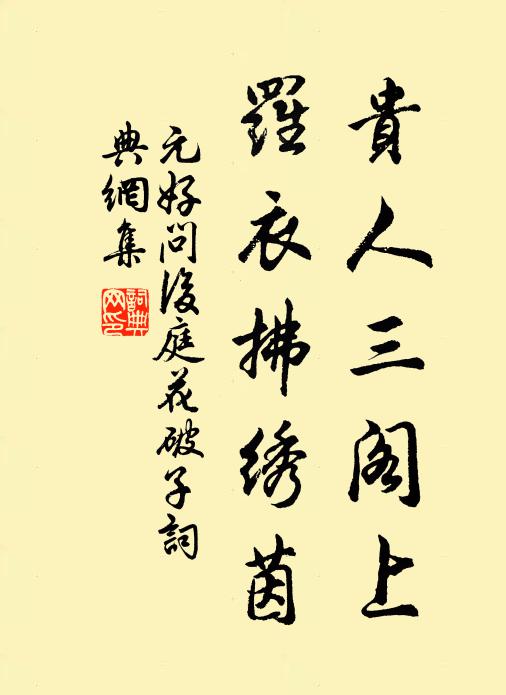 貴人三阁上
羅衣拂绣茵
元好问後庭花破子詞
典網集
詞典
网印